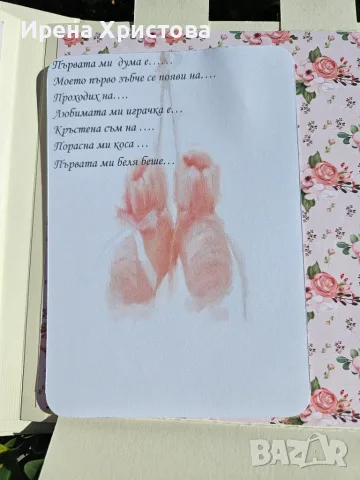 Ирена Христова
Първата ми дума е……
Моето първо зъбче се появи на….
Проходих на….
Любимата ми играчка е…
Кръстена съм на ….
Порасна ми коса …
Първата ми беля беше…
bazar
БГ